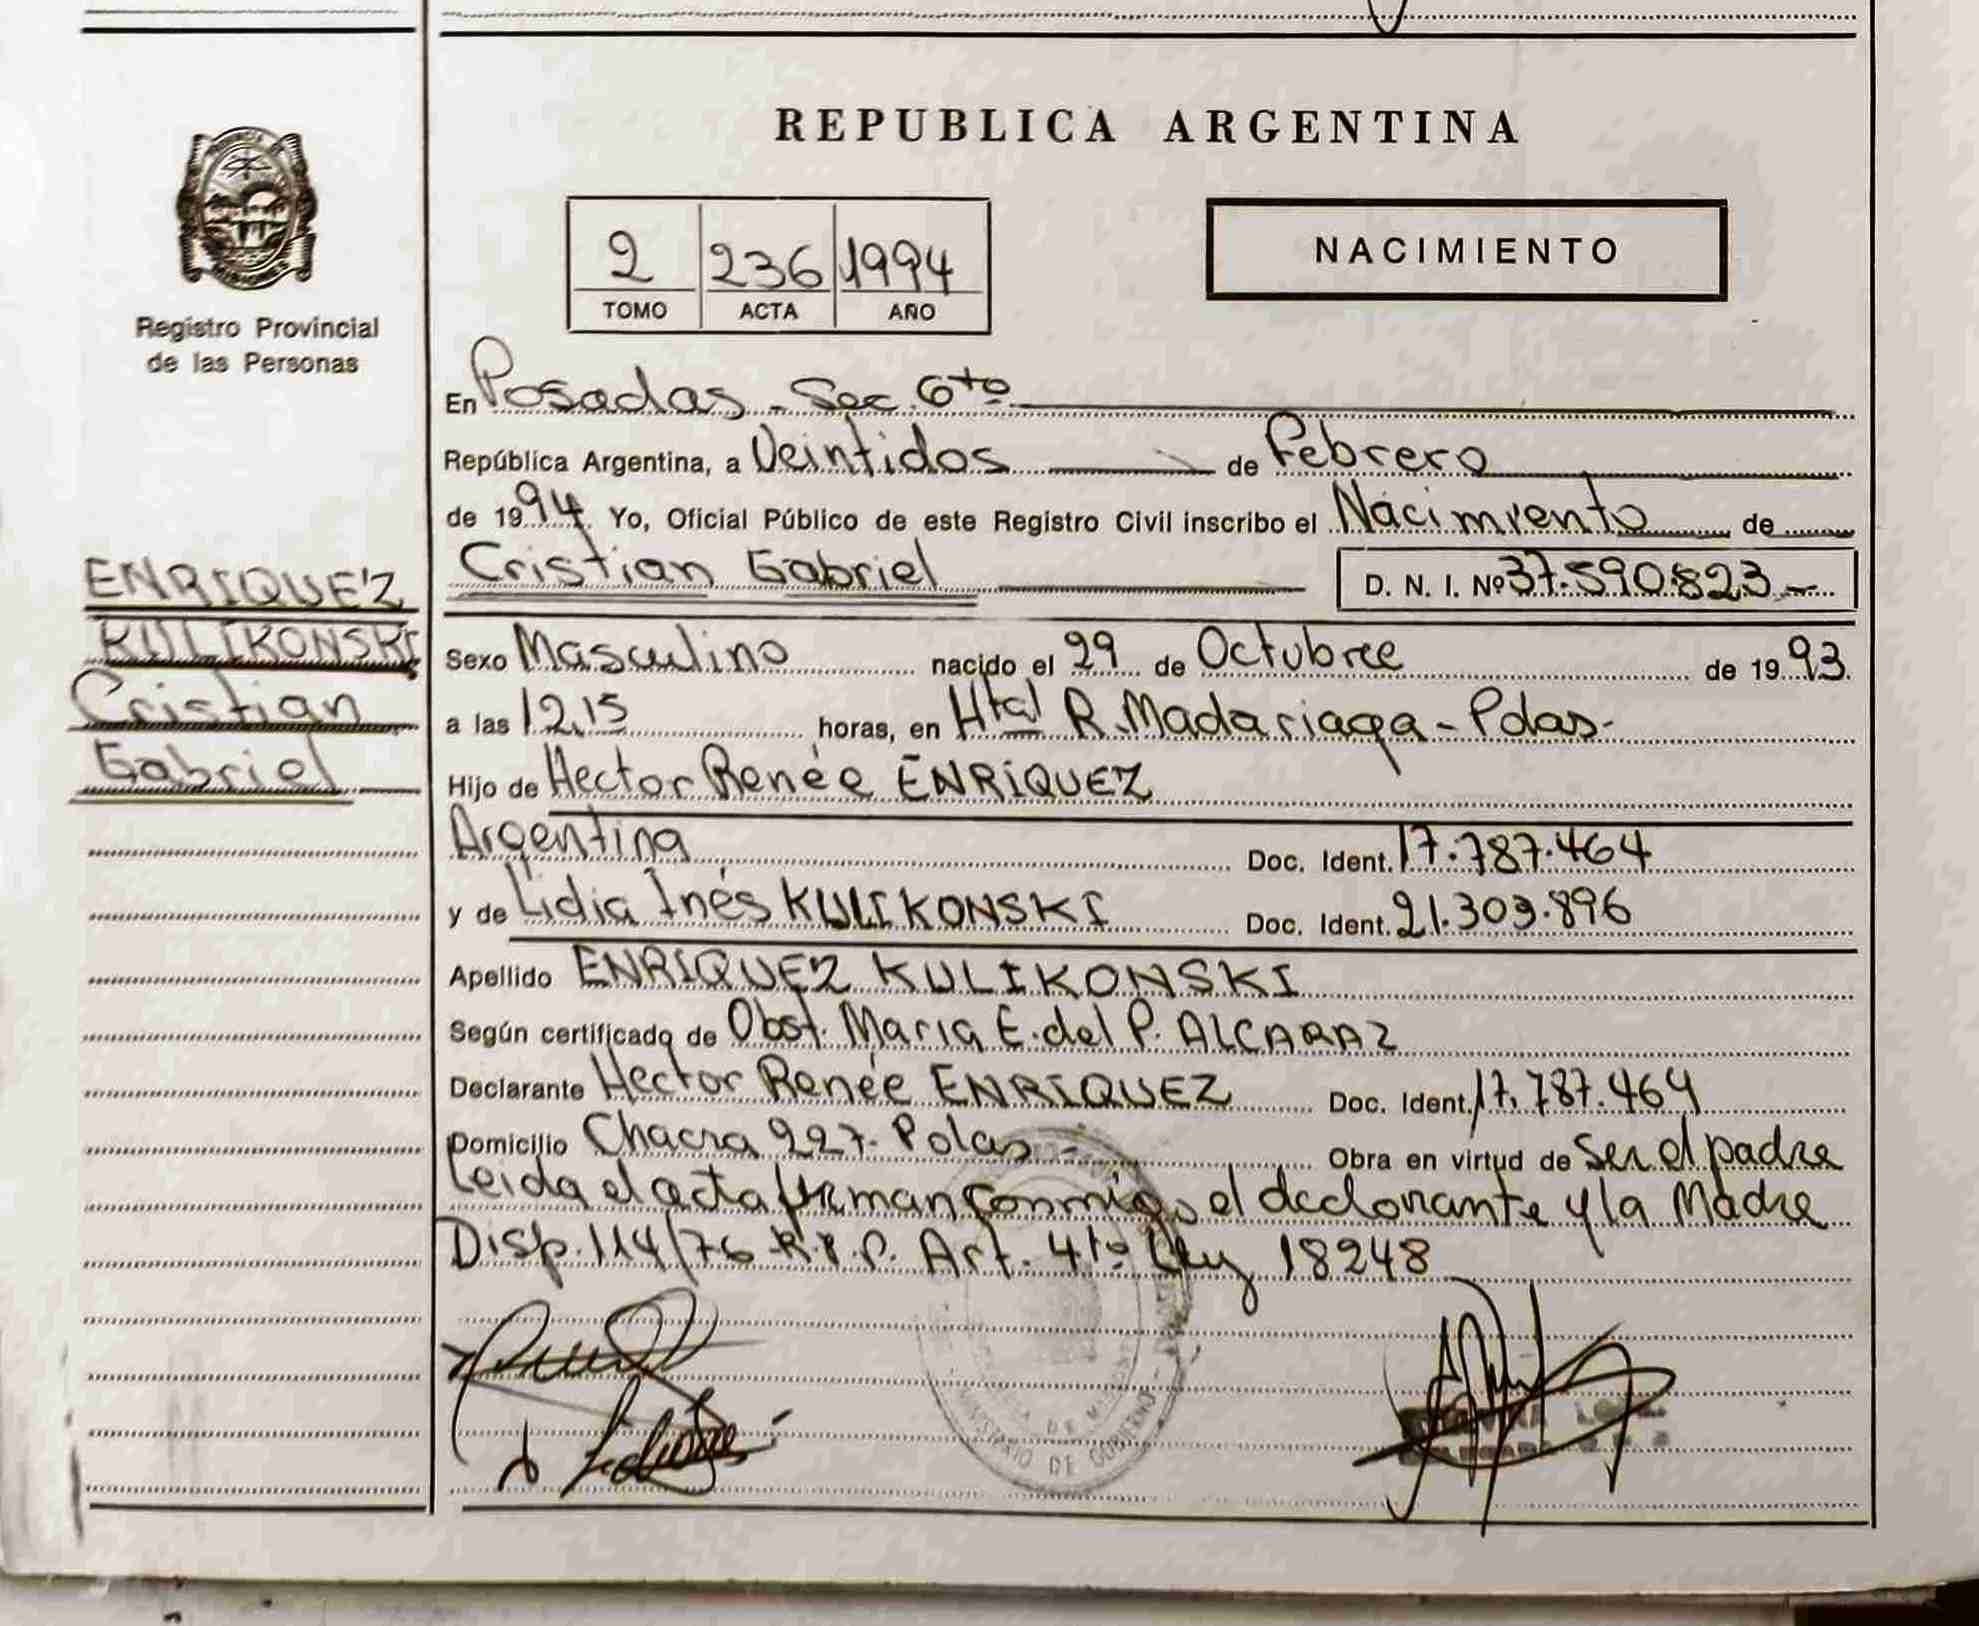 REPUBLICA ARGENTINA
2 236 1994
TOMO ACTA AÑO
NACIMIENTO
Registro Provincial
de las Personas
En Posadas - Sec. 6ta
República Argentina, a Veintidos de Febrero
de 1994. Yo, Oficial Público de este Registro Civil inscribo el Nacimiento de
Cristian Gabriel D. N. I. Nº 37.590.823.-
ENRIQUEZ
KULIKONSKI
Cristian
Gabriel
Sexo Masculino nacido el 29 de Octubre de 1993.
a las 12,15 horas, en Htal R. Madariaga - Pdas-
Hijo de Hector Renée ENRIQUEZ
Argentina Doc. Ident. 17.787.464
y de Lidia Inés KULIKONSKI Doc. Ident. 21.303.896
Apellido ENRIQUEZ KULIKONSKI
Según certificado de Obst. Maria E. del P. ALCARAZ
Declarante Hector Renée ENRIQUEZ Doc. Ident. 17.787.464
Domicilio Chacra 227- Pdas - Obra en virtud de Ser el padre
Leida el acta firman conmigo el declarante y la Madre
Disp. 114/76 R.P.P. Art. 4to Ley 18248
MINISTERIO DE GOBIERNO